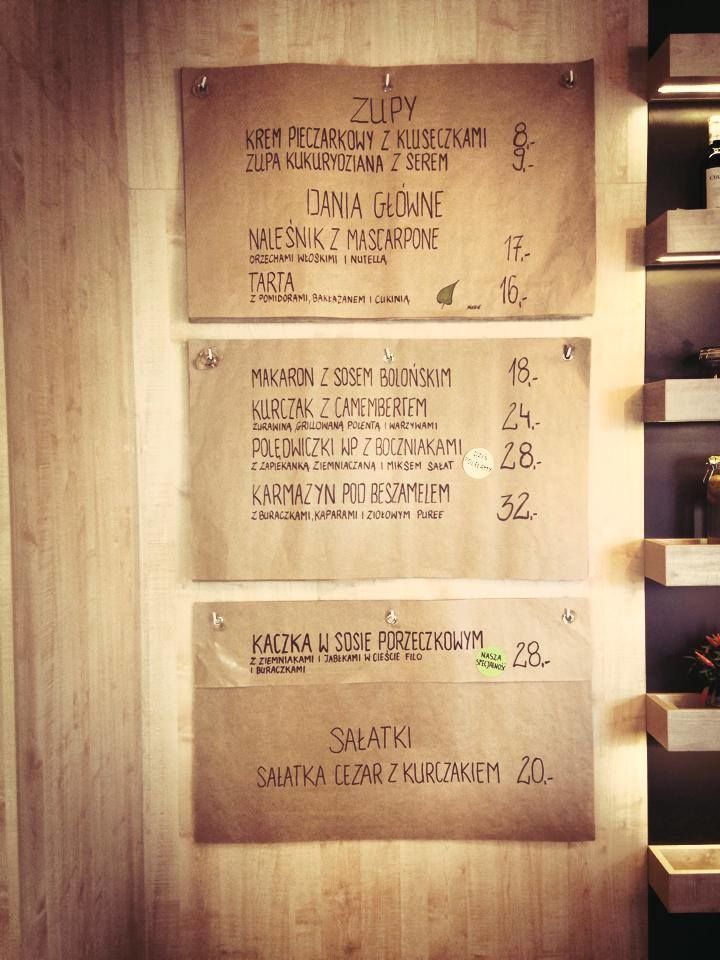 ZUPY
KREM PIECZARKOWY Z KLUSECZKAMI 8,-
ZUPA KUKURYDZIANA Z SEREM 9,-
DANIA GŁÓWNE
NALEŚNIK Z MASCARPONE 17,-
ORZECHAMI WŁOSKIMI I NUTELLĄ
TARTA 16,-
Z POMIDORAMI, BAKŁAŻANEM I CUKINIĄ
MAKARON Z SOSEM BOLOŃSKIM 18,-
KURCZAK Z CAMEMBERTEM 24,-
ŻURAWINĄ, GRILLOWANĄ POLENTĄ I WARZYWAMI
POLĘDWICZKI WP Z BOCZNIAKAMI 28,-
Z ZAPIEKANKĄ ZIEMNIACZANĄ I MIKSEM SAŁAT
DZIŚ
POLECAMY
KARMAZYN POD BESZAMELEM 32,-
Z BURACZKAMI, KAPARAMI I ZIOŁOWYM PUREE
KACZKA W SOSIE PORZECZKOWYM 28,-
Z ZIEMNIAKAMI I JABŁKAMI W CIEŚCIE FILO
I BURACZKAMI
NASZA
SPECJALNOŚĆ
SAŁATKI
SAŁATKA CEZAR Z KURCZAKIEM 20,-